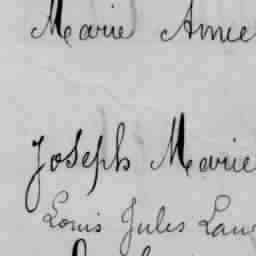 Marie Aimee
Joseph Marie
Louis Jules Lau